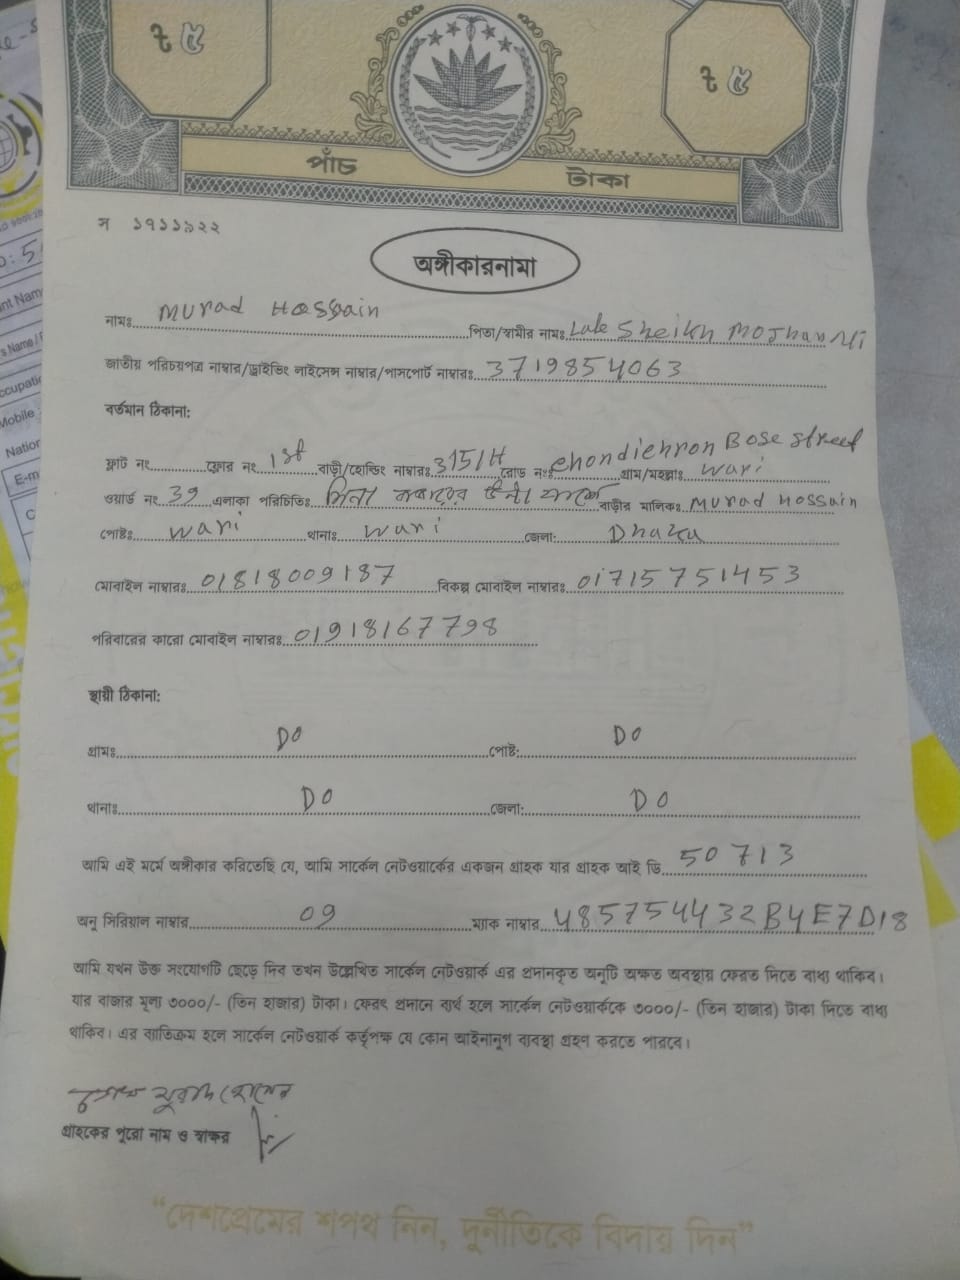 ৳ ৫ ৳ ৫
পাঁচ টাকা
স ১৭১১৯২২
অঙ্গীকারনামা
নামঃ Murad Hossain পিতা/স্বামীর নামঃ Late Sheikh
জাতীয় পরিচয়পত্র নাম্বার/ড্রাইভিং লাইসেন্স নাম্বার/পাসপোর্ট নাম্বারঃ 3719854063
বর্তমান ঠিকানা:
ফ্লাট নং ফ্লোর নং 1st বাড়ী/হোল্ডিং নাম্বারঃ 315/H রোড নংঃ Bose Street গ্রাম/মহল্লাঃ Wari
ওয়ার্ড নং 39 এলাকা পরিচিতিঃ বাড়ীর মালিকঃ Murad Hossain
পোষ্টঃ Wari থানাঃ Wari জেলা: Dhaka
মোবাইল নাম্বারঃ 01818009187 বিকল্প মোবাইল নাম্বারঃ 01715751453
পরিবারের কারো মোবাইল নাম্বারঃ 01918167798
স্থায়ী ঠিকানা:
গ্রামঃ DO পোষ্ট: DO
থানাঃ DO জেলা: DO
আমি এই মর্মে অঙ্গীকার করিতেছি যে, আমি সার্কেল নেটওয়ার্কের একজন গ্রাহক যার গ্রাহক আই ডি 50713
অনু সিরিয়াল নাম্বার 09 ম্যাক নাম্বার 485754432B4E7D18
আমি যখন উক্ত সংযোগটি ছেড়ে দিব তখন উল্লেখিত সার্কেল নেটওয়ার্ক এর প্রদানকৃত অনুটি অক্ষত অবস্থায় ফেরত দিতে বাধ্য থাকিব।
যার বাজার মূল্য ৩০০০/- (তিন হাজার) টাকা। ফেরৎ প্রদানে ব্যর্থ হলে সার্কেল নেটওয়ার্ককে ৩০০০/- (তিন হাজার) টাকা দিতে বাধ্য
থাকিব। এর ব্যতিক্রম হলে সার্কেল নেটওয়ার্ক কর্তৃপক্ষ যে কোন আইনানুগ ব্যবস্থা গ্রহণ করতে পারবে।
গ্রাহকের পুরো নাম ও স্বাক্ষর
“দেশপ্রেমের শপথ নিন, দুর্নীতিকে বিদায় দিন”